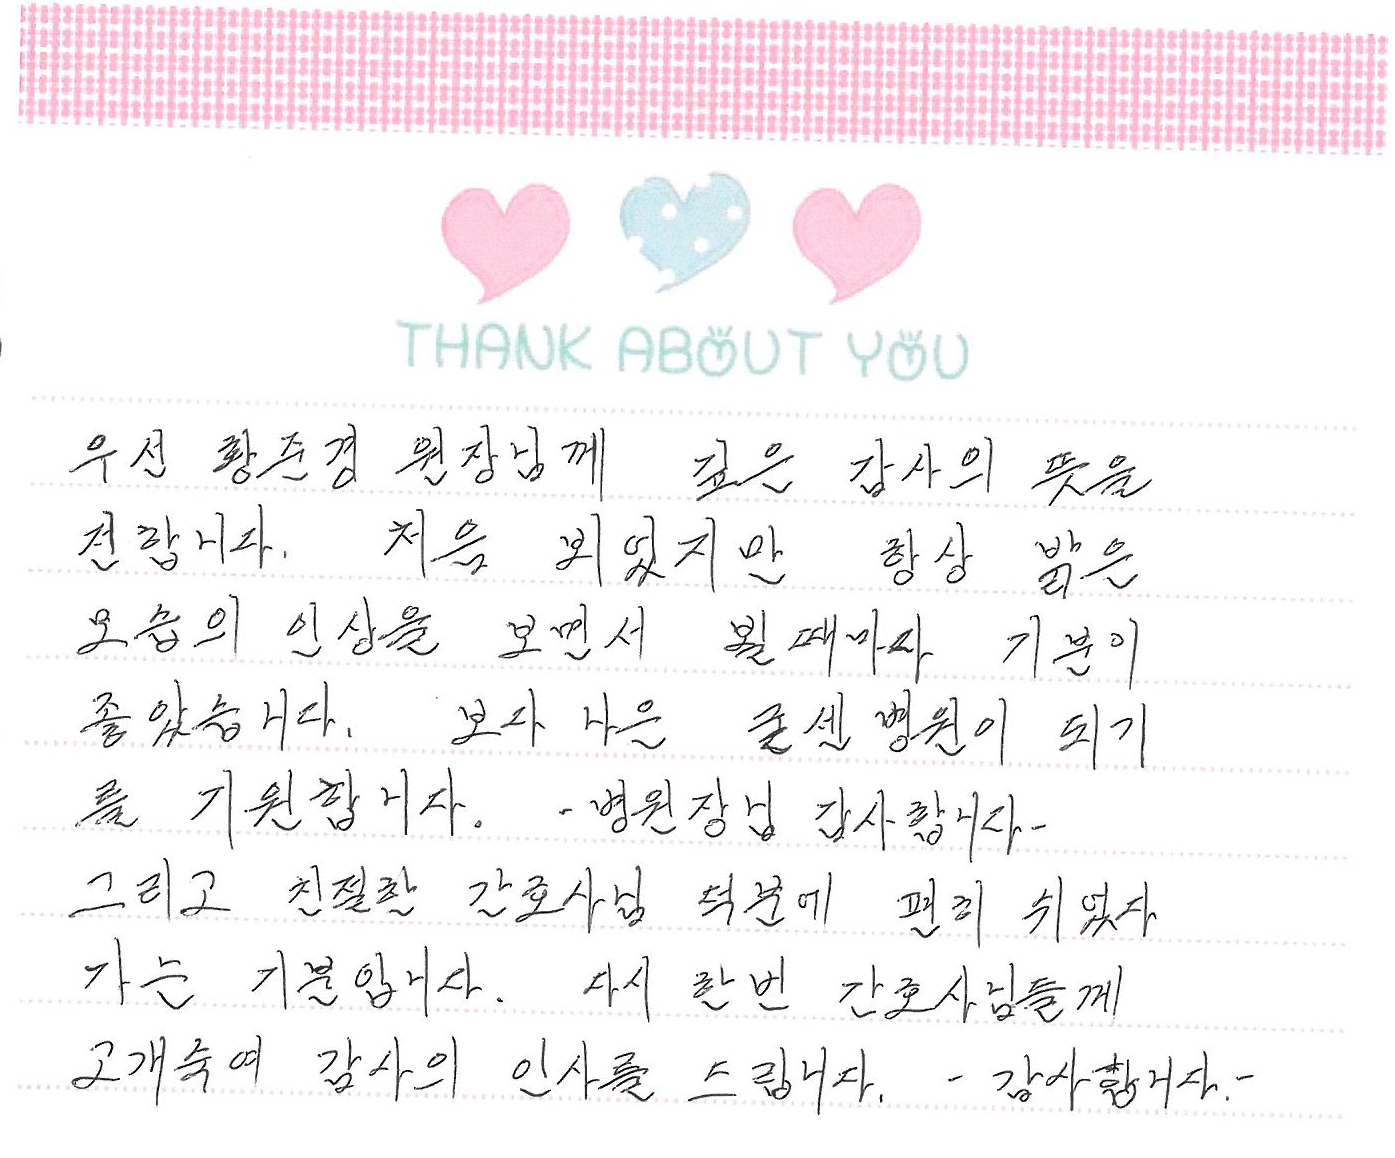 THANK ABOUT YOU
우선 황준경 원장님께 깊은 감사의 뜻을
전합니다. 처음 뵈었지만 항상 밝은
모습의 인상을 보면서 뵐때마다 기분이
좋았습니다. 보다 나은 굳센병원이 되기
를 기원합니다. - 병원장님 감사합니다-
그리고 친절한 간호사님 덕분에 편히 쉬었다
가는 기분입니다. 다시 한번 간호사님들께
고개숙여 감사의 인사를 드립니다. - 감사합니다.-